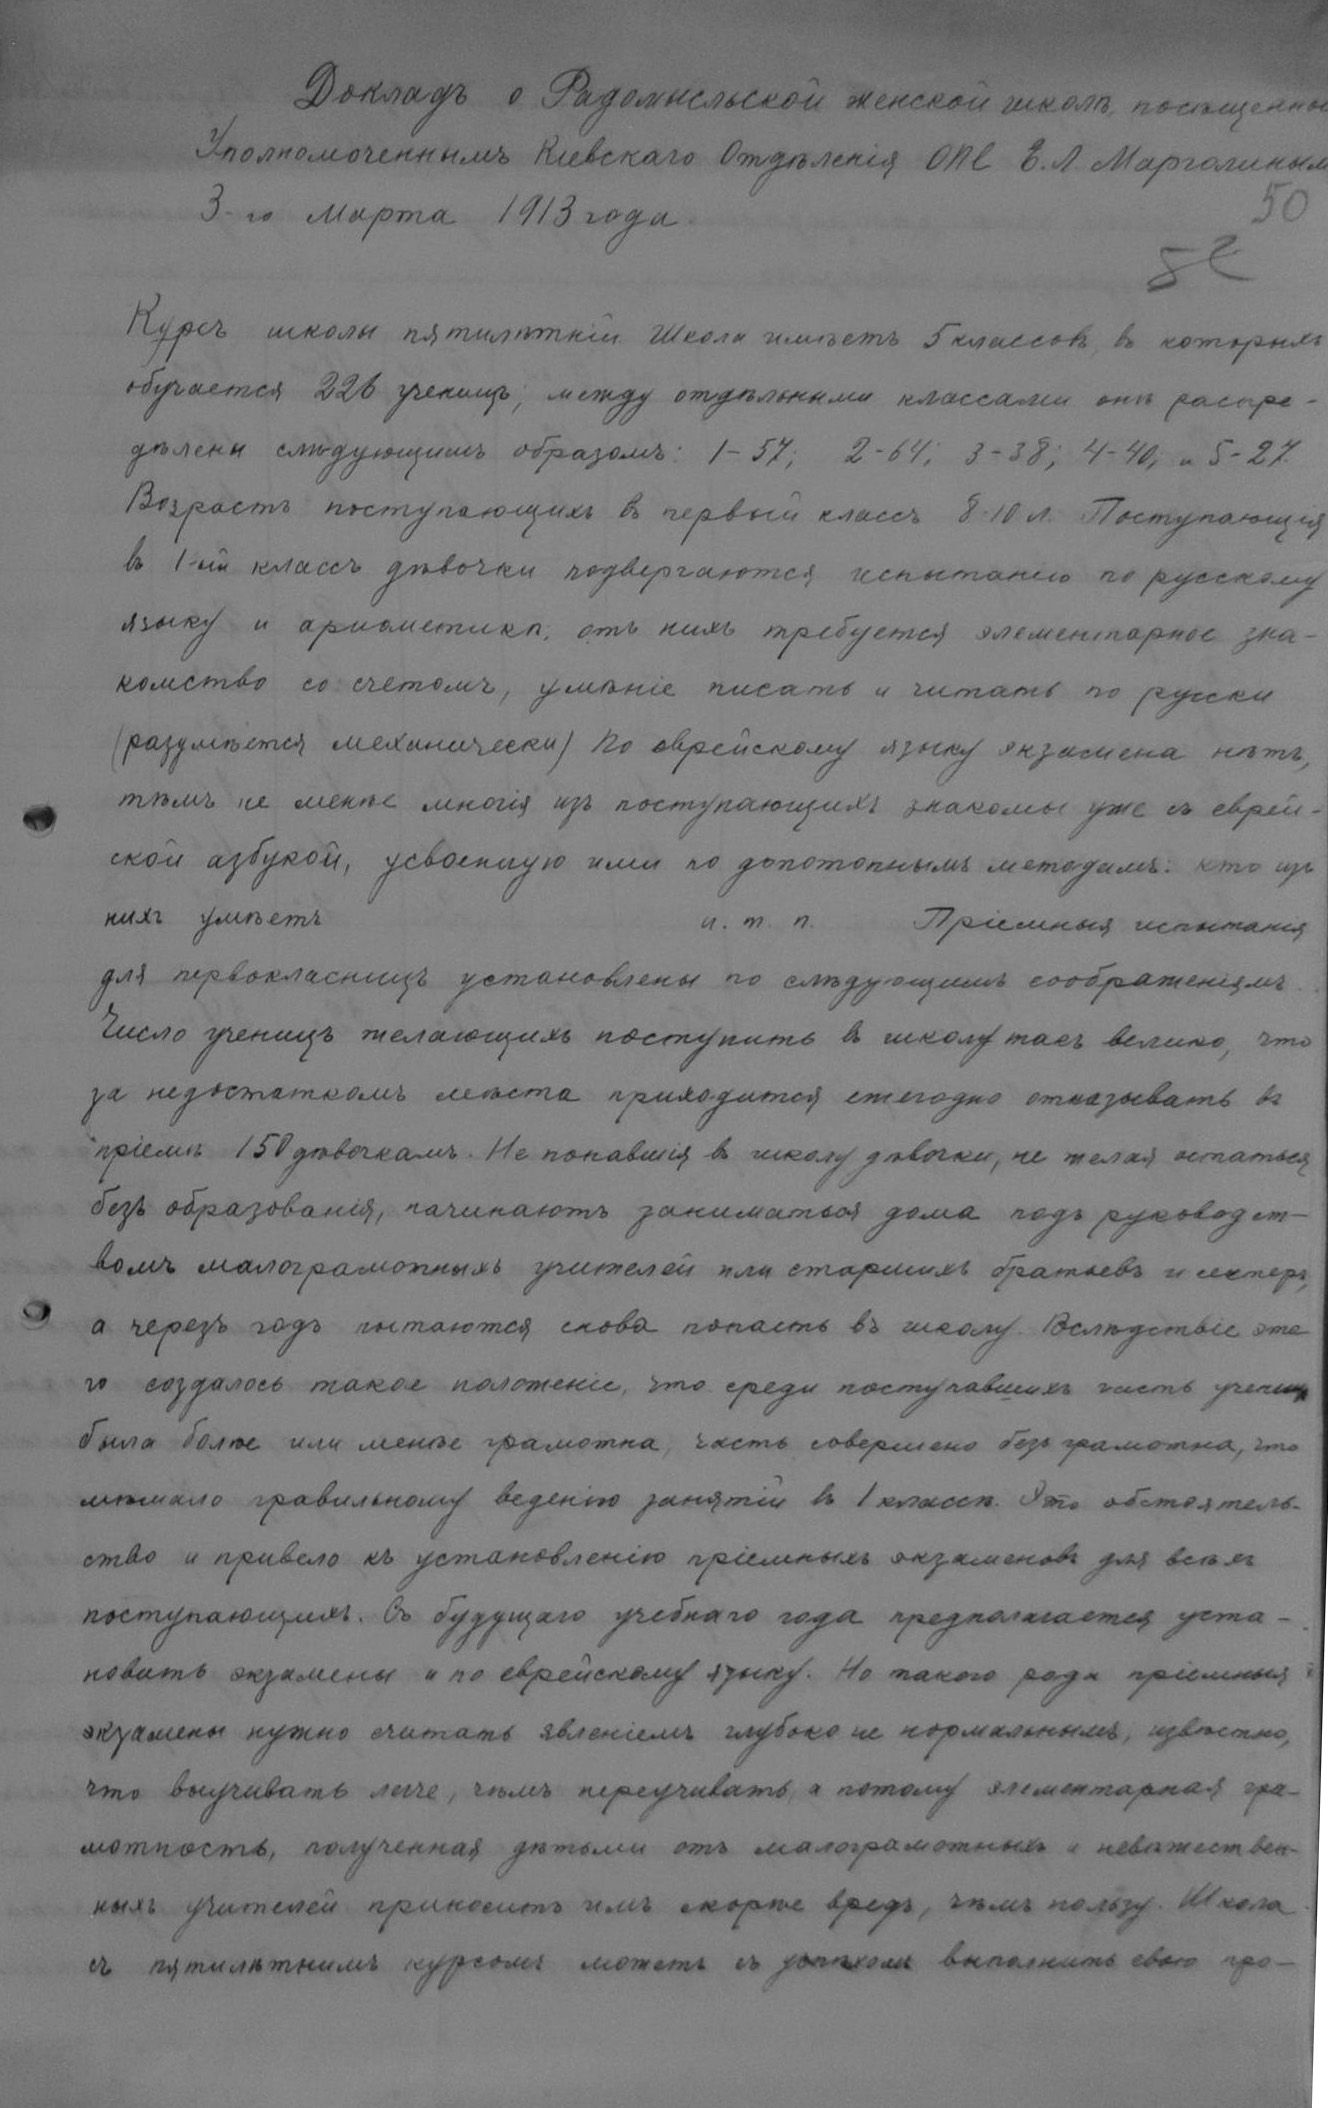 Докладъ о Радомысльской женской школѣ, посѣщенной
Уполномоченнымъ Кіевскаго Отдѣленія ОПЕ Е. Л. Марголинымъ
3-го Марта 1913 года.
50
Курсъ школы пятилѣтній. Школа имѣетъ 5 классовъ, въ которыхъ
обучается 226 ученицъ; между отдѣльными классами онѣ распре-
дѣлены слѣдующимъ образомъ: 1-57; 2-64; 3-38; 4-40; и 5-27.
Возрастъ поступающихъ въ первый классъ 8-10 л. Поступающія
въ 1-ый классъ дѣвочки подвергаются испытанію по русскому
языку и ариѳметикѣ; отъ нихъ требуется элементарное зна-
комство со счетомъ, умѣніе писать и читать по русски
(разумѣется механически) По еврейскому языку экзамена нѣтъ,
тѣмъ не менѣе многія изъ поступающихъ знакомы уже съ еврей-
ской азбукой, усвоенную ими по допотопнымъ методамъ: кто изъ
нихъ умѣетъ и. т. п. Пріемныя испытанія
для первокласницъ установлены по слѣдующимъ соображеніямъ.
Число ученицъ желающихъ поступить въ школу такъ велико, что
за недостаткомъ мѣста приходится ежегодно отказывать въ
пріемѣ 150 дѣвочкамъ. Не попавшія въ школу дѣвочки, не желая остаться
безъ образованія, начинаютъ заниматься дома подъ руководст-
вомъ малограмотныхъ учителей или старшихъ братьевъ и сестеръ,
а черезъ годъ пытаются снова попасть въ школу. Вслѣдствіе это
го создалось такое положеніе, что среди поступавшихъ часть ученицъ
была болѣе или менѣе грамотна, часть совершено безграмотна, что
мѣшало правильному веденію занятій въ 1 классѣ. Это обстоятель-
ство и привело къ установленію пріемныхъ экзаменовъ для всѣхъ
поступающихъ. Съ будущаго учебнаго года предполагается уста-
новить экзамены и по еврейскому языку. Но такого рода пріемныя
экзамены нужно считать явленіемъ глубоко не нормальнымъ, извѣстно,
что выучивать легче, чѣмъ переучивать, а потому элементарная гра-
мотность, полученная дѣтьми отъ малограмотныхъ и невѣжествен-
ныхъ учителей приноситъ имъ скорѣе вредъ, чѣмъ пользу. Школа
съ пятилѣтнимъ курсомъ можетъ съ успѣхомъ выполнить свою про-